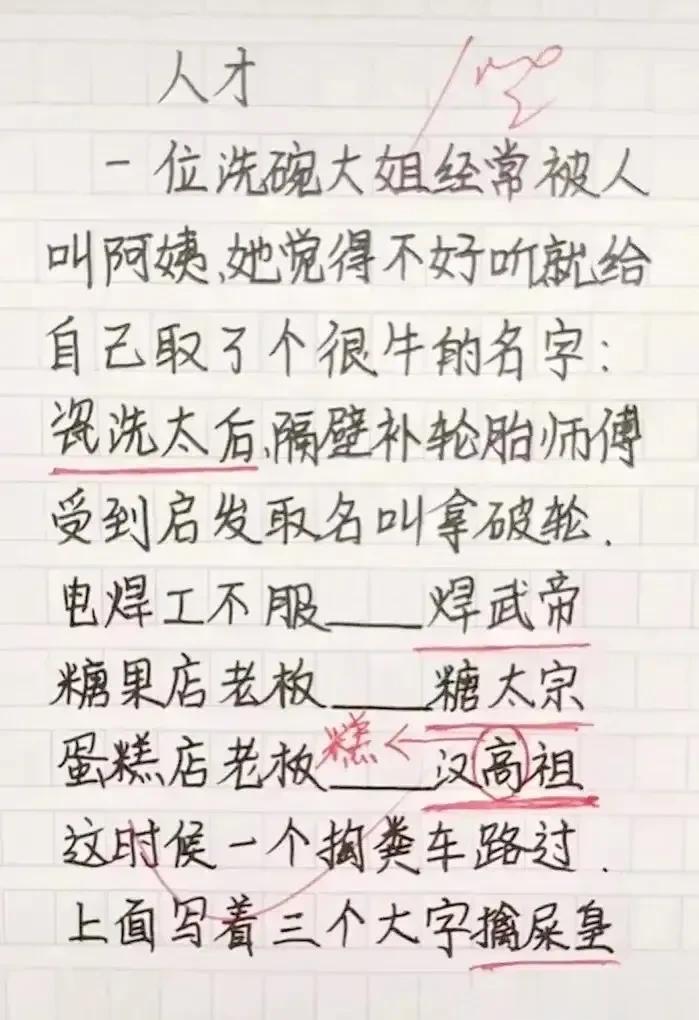 人才
一位洗碗大姐经常被人
叫阿姨、她觉得不好听就给
自己取了个很牛的名字:
瓷洗太后、隔壁补轮胎师傅
受到启发取名叫拿破轮.
电焊工不服____焊武帝
糖果店老板____糖太宗
糕
蛋糕店老板____汉高祖
这时候一个掏粪车路过.
上面写着三个大字擒屎皇